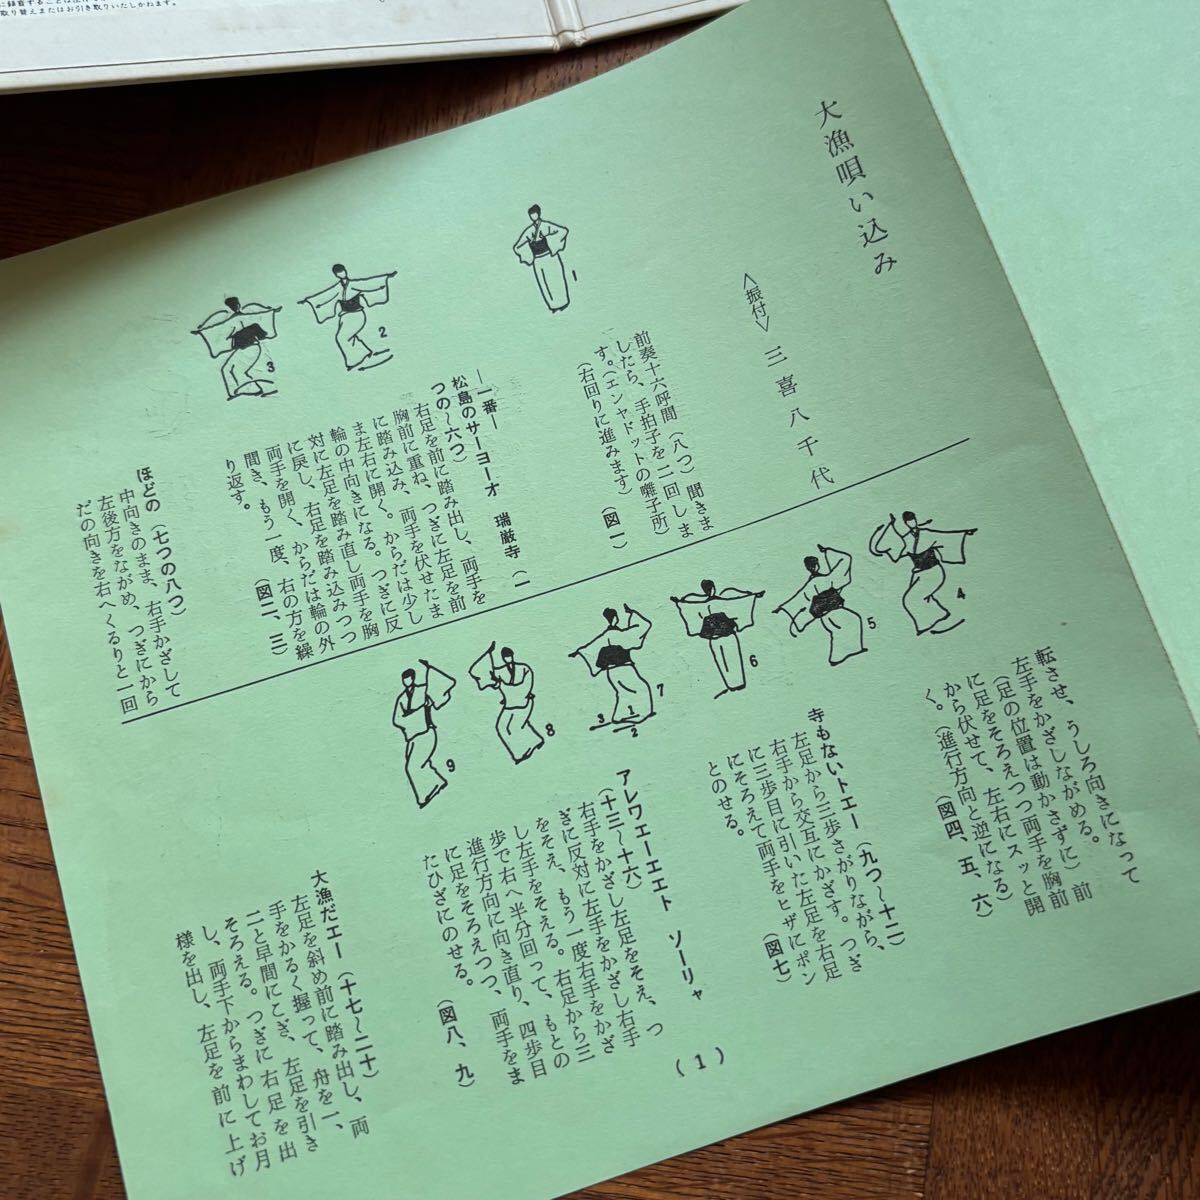 取り替えまたはお引き取りいたしかねます。
大漁唄い込み
＜振付＞ 三喜八千代
前奏十六呼間（八つ）聞きま
したら、手拍子を二回しま
す。（エンヤドットの囃子所）
（右回りに進みます）
（図一）
1
―一番―
松島のサーヨーオ 瑞厳寺（一
つの〜六つ）
右足を前に踏み出し、両手を
胸前に重ね、つぎに左足を前
に踏み込み、両手を伏せたま
ま左右に開く。からだは少し
輪の中向きになる。つぎに反
対に左足を踏み直し両手を胸
に戻し、右足を踏み込みつつ
両手を開く、からだは輪の外
聞き、もう一度、右の方を繰
り返す。
（図二、三）
2
3
ほどの（七つの八つ）
中向きのまま、右手かざして
左後方をながめ、つぎにから
だの向きを右へくるりと一回
転させ、うしろ向きになって
左手をかざしながめる。
（足の位置は動かさずに）前
に足をそろえつつ両手を胸前
から伏せて、左右にスッと開
く。（進行方向と逆になる）
（図四、五、六）
4
5
6
寺もないトエー（九つ〜十二）
左足から三歩さがりながら、
右手から交互にかざす。つぎ
に三歩目に引いた左足を右足
にそろえて両手をヒザにポン
とのせる。
（図七）
7
3
1
2
アレワエーエエト ソーリャ
（十三〜十六）
右手をかざし左足をそえ、つ
ぎに反対に左手をかざし右手
をそえ、もう一度右手をかざ
し左手をそえる。右足から三
歩で右へ半分回って、もとの
進行方向に向き直り、四歩目
に足をそろえつつ、両手をま
たひざにのせる。
（図八、九）
8
9
大漁だエー（十七〜二十）
左足を斜め前に踏み出し、両
手をかるく握って、舟を一、
二と早間にこぎ、左足を引き
そろえる。つぎに右足を出
し、両手下からまわしてお月
様を出し、左足を前に上げ
(1)